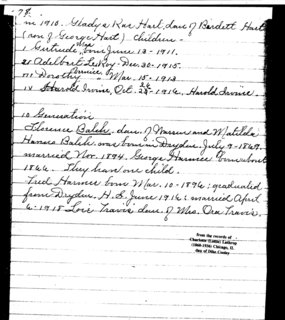 78.
in 1910. Gladys Rae Hart, dau. of Burdett Hart
(son of George Hart) Children -
I Gertrude Mae born June 13 - 1911.
II Adelbert LeRoy Dec. 30 - 1915.
III Dorothy Mar. 15 - 1913
IV Harold Irvine, Oct. 1916. Harold Irvine.
10 Generation
Florence Balch, dau. of Warren and Matilda
Balch was born in Dryden July 9 - 1869.
married Nov. 1894. George born about
1866. They have one child.
Fred born Mar. 10 - 1896; graduated
from Dryden. H.S. June 1914; married April
6 - 1918 Lois Travis dau. of Mrs. Ora Travis.
from the records of
Charlotte (Lottie) Lathrop
Chicago, IL
dau of Dike Conley